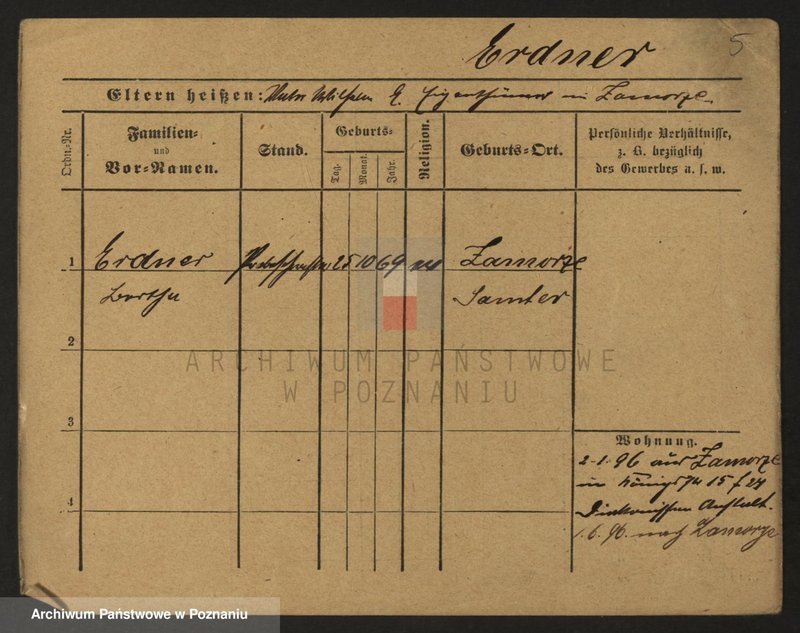 Erdner 5
Eltern heißen: Vater Wilhelm E. Eigenthümer in Zamorze.
Ordn.-Nr. Familien- und Vor-Namen. Stand. Geburts- Tag. Monat. Jahr. Religion. Geburts-Ort. Persönliche Verhältnisse, z. B. bezüglich des Gewerbes u. s. w.
1 Erdner 25 10 69 Zamorze
Bertha Samter
2
ARCHIWUM PAŃSTWOWE
W POZNANIU
3
Wohnung.
2-1.96 aus Zamorze
in Königstr 15 f 27
4 Diakonissen Anstalt.
1.6.96. nach Zamorze
Archiwum Państwowe w Poznaniu